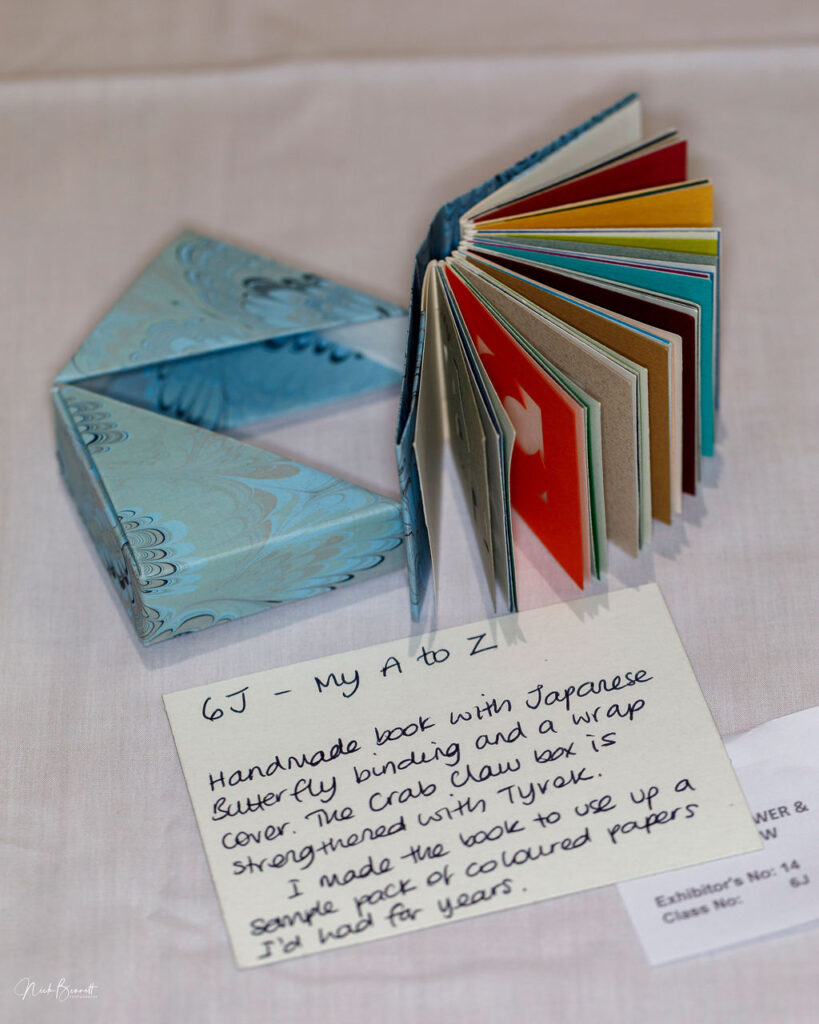 6J - My A to Z
Handmade book with Japanese
Butterfly binding and a wrap
cover. The Crab Claw box is
strengthened with Tyvek.
I made the book to use up a
sample pack of coloured papers
I'd had for years.
WER &
W
Exhibitor's No: 14
Class No: 6J
Nick Bennett